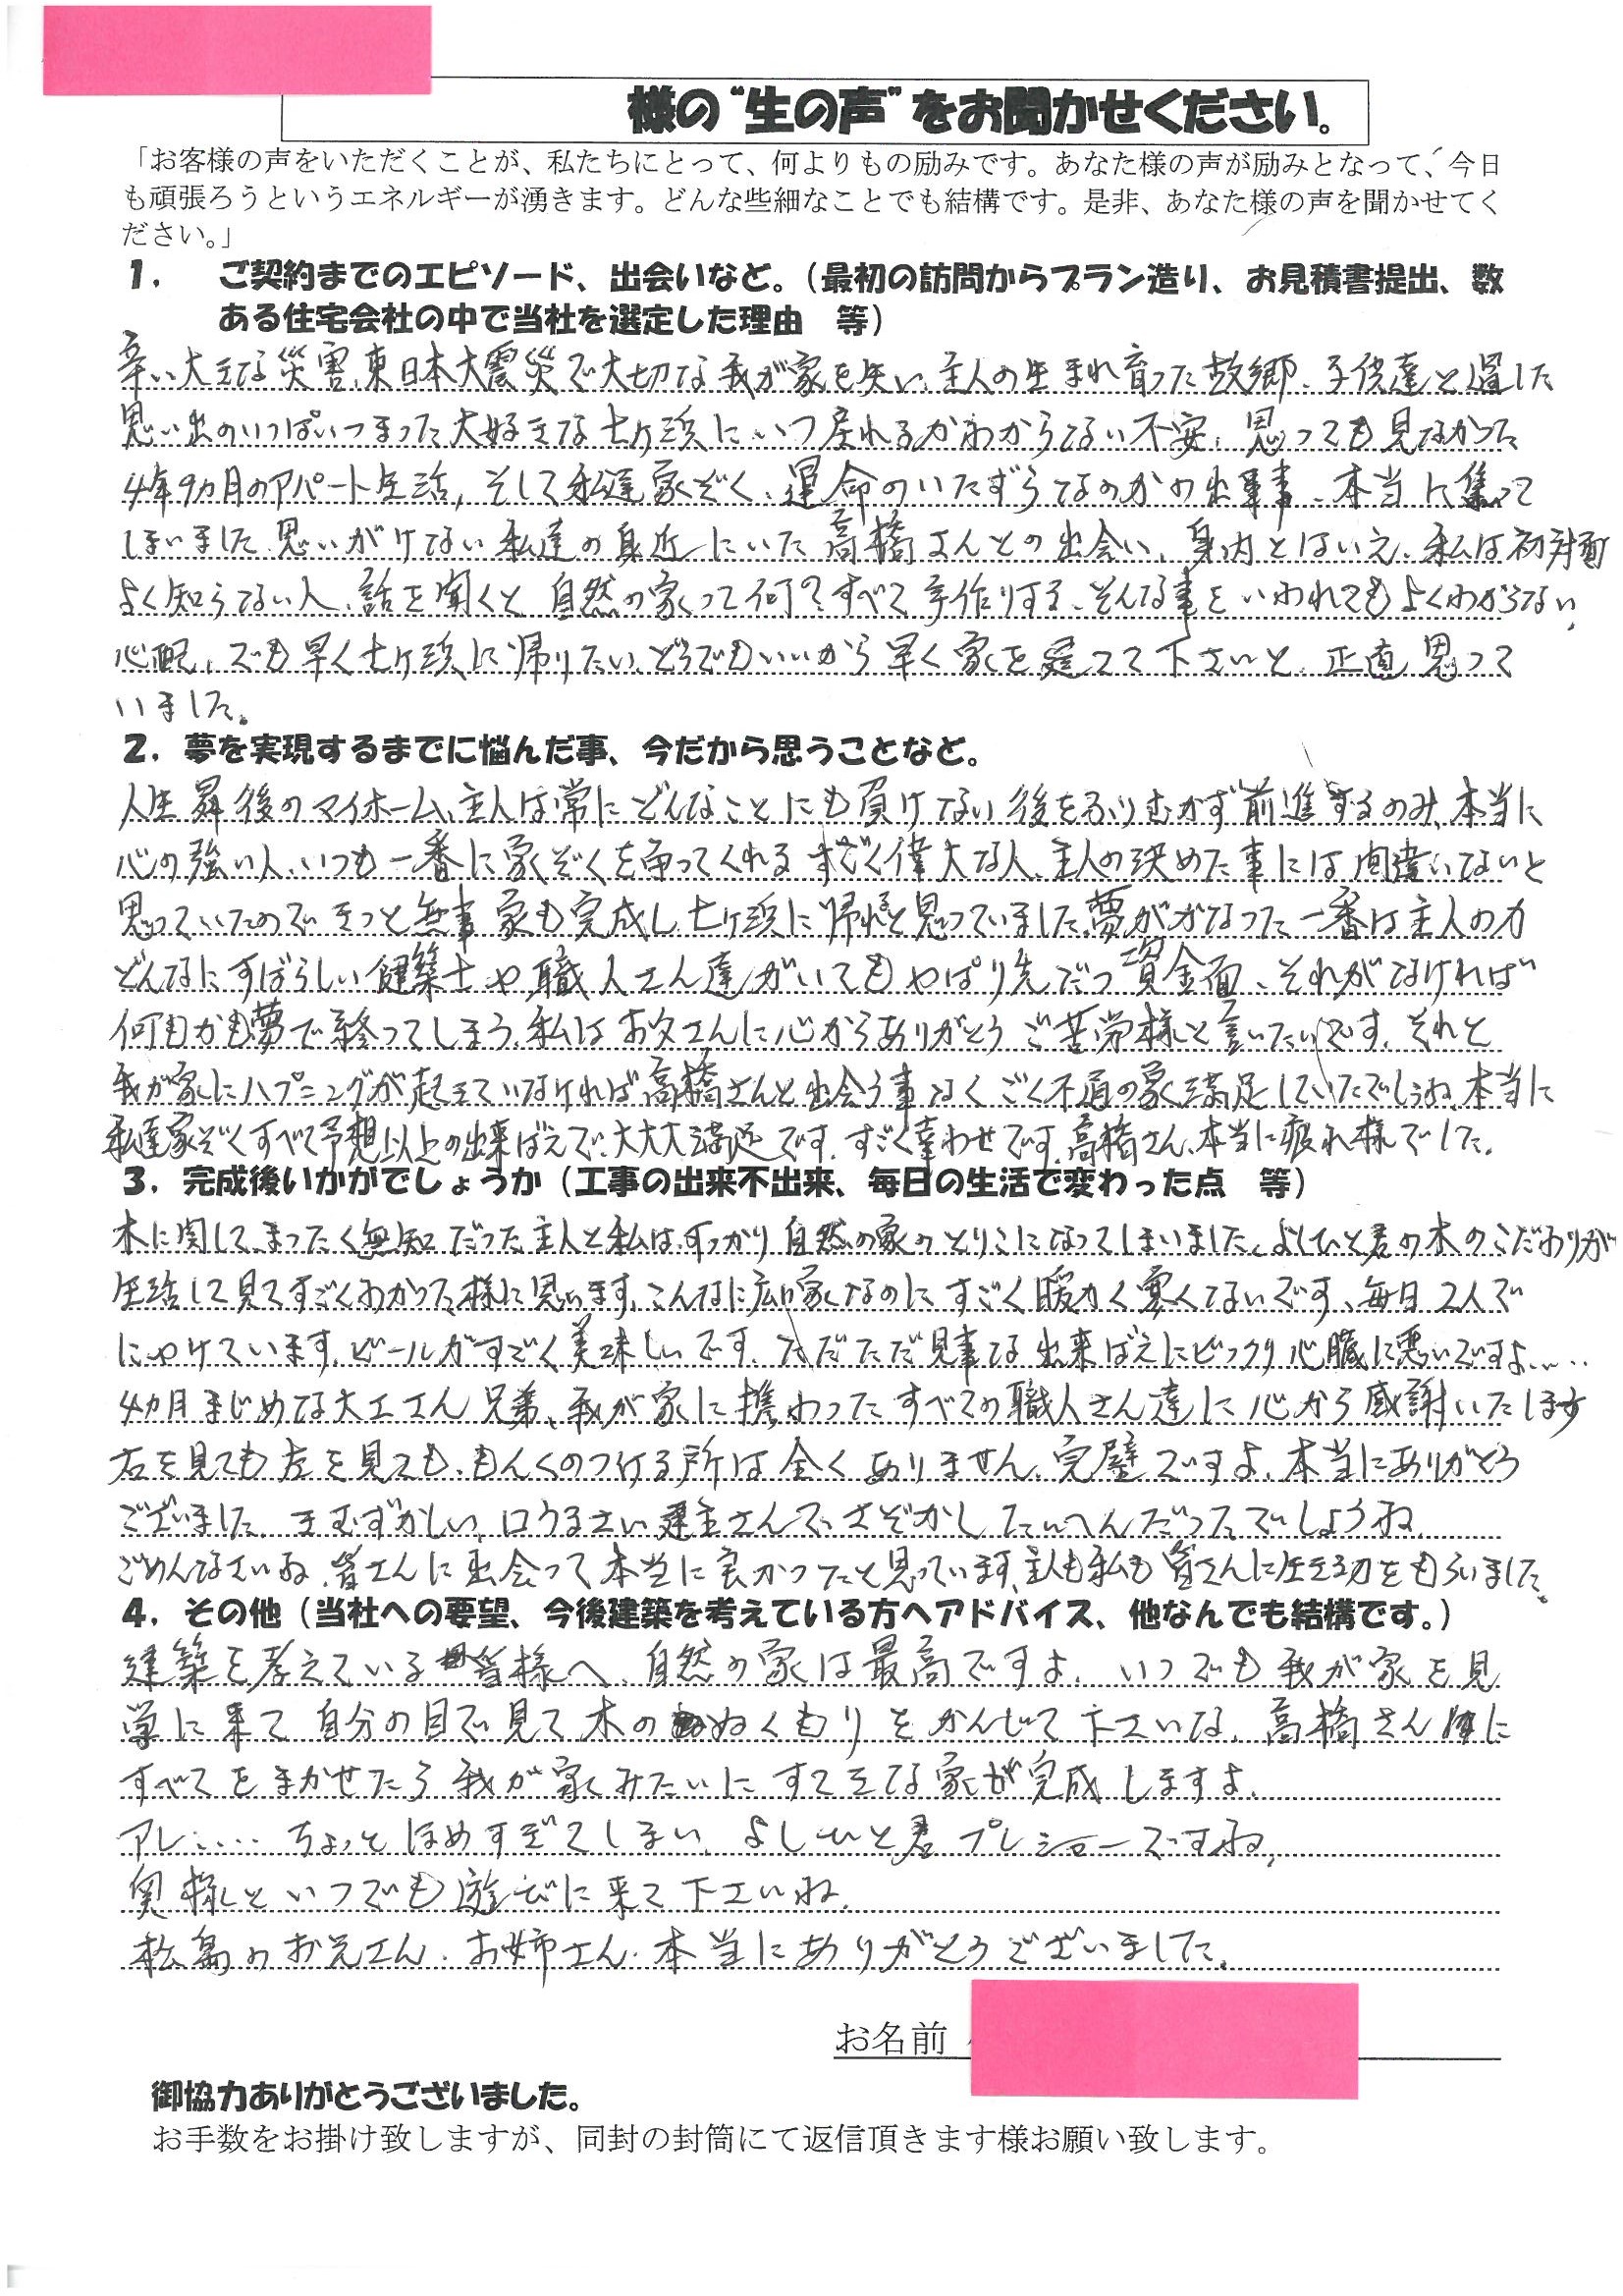 様の“生の声”をお聞かせください。
「お客様の声をいただくことが、私たちにとって、何よりもの励みです。あなた様の声が励みとなって、今日
も頑張ろうというエネルギーが湧きます。どんな些細なことでも結構です。是非、あなた様の声を聞かせてく
ださい。」
1. ご契約までのエピソード、出会いなど。（最初の訪問からプラン造り、お見積書提出、数
ある住宅会社の中で当社を選定した理由 等）
辛い大きな災害、東日本大震災で大切な我が家を失い、主人の生まれ育った故郷、子供達と過した
思い出のいっぱいつまった大好きな七ヶ浜にいつ戻れるかわからない不安、思っても見なかった
4年9カ月のアパート生活、そして私達家ぞく、運命のいたずらなのかの出来事、本当に集って
しまいました。思いがけない私達の身近にいた高橋さんとの出会い、身内とはいえ、私は初対面
よく知らない人、話を聞くと自然の家って何？すべて手作りする、そんな事をいわれてもよくわからない、
心配、でも早く七ヶ浜に帰りたい、どうでもいいから早く家を建てて下さいと、正直思って
いました。
2. 夢を実現するまでに悩んだ事、今だから思うことなど。
人生最後のマイホーム、主人は常にどんなことにも負けない後をふりむかず前進するのみ、本当に
心の強い人、いつも一番に家ぞくを守ってくれるすごく偉大な人、主人の決めた事には間違いないと
思っていたのできっと無事家も完成し七ヶ浜に帰れると思っていました。夢がかなった一番は主人の力
どんなにすばらしい建築士や職人さん達がいてもやぱり先だつ資金面、それがなければ
何もかも夢で終ってしまう、私はお父さんに心からありがとうご苦労様と言いたいです。それと
我が家にハプニングが起きていなければ高橋さんと出会う事なくごく不通の家で満足していたでしょうね、本当に
私達家ぞくすべて予想以上の出来ばえで、大大大満足です。すごく幸わせです。高橋さん、本当に疲れ様でした。
3. 完成後いかがでしょうか（工事の出来不出来、毎日の生活で変わった点 等）
木に関して、まったく無知だった主人と私は、すっかり自然の家のとりこになってしまいました。よしひと君の木のこだわりが
生活して見てすごくわかった様に思います。こんなに広い家なのにすごく暖かく寒くないです、毎日2人で
にやけています。ビールがすごく美味しいです。ただただ見事な出来ばえにビックリ心臓に悪いですよ……
4カ月まじめな大工さん兄弟、我が家に携わったすべての職人さん達に心から感謝いたします
右を見ても左を見ても、もんくのつける所は全くありません、完璧ですよ、本当にありがとう
ございました。きむずかしい、口うるさい建主さんで、さぞかしたいへんだったでしょうね。
ごめんなさいね。皆さんに出会って本当に良かったと思っています、主人も私も皆さんに生きる力をもらいました。
4. その他（当社への要望、今後建築を考えている方へアドバイス、他なんでも結構です。）
建築を考えている皆様へ、自然の家は最高ですよ。いつでも我が家を見
学に来て自分の目で見て木のぬくもりをかんじて下さいな。高橋さんに
すべてをまかせたら我が家みたいにすてきな家が完成しますよ。
アレ…… ちょっとほめすぎてしまい、よしひと君プレシャーですね、
奥様といつでも遊びに来て下さいね。
松島のお兄さん、お姉さん、本当にありがとうございました。
お名前
御協力ありがとうございました。
お手数をお掛け致しますが、同封の封筒にて返信頂きます様お願い致します。